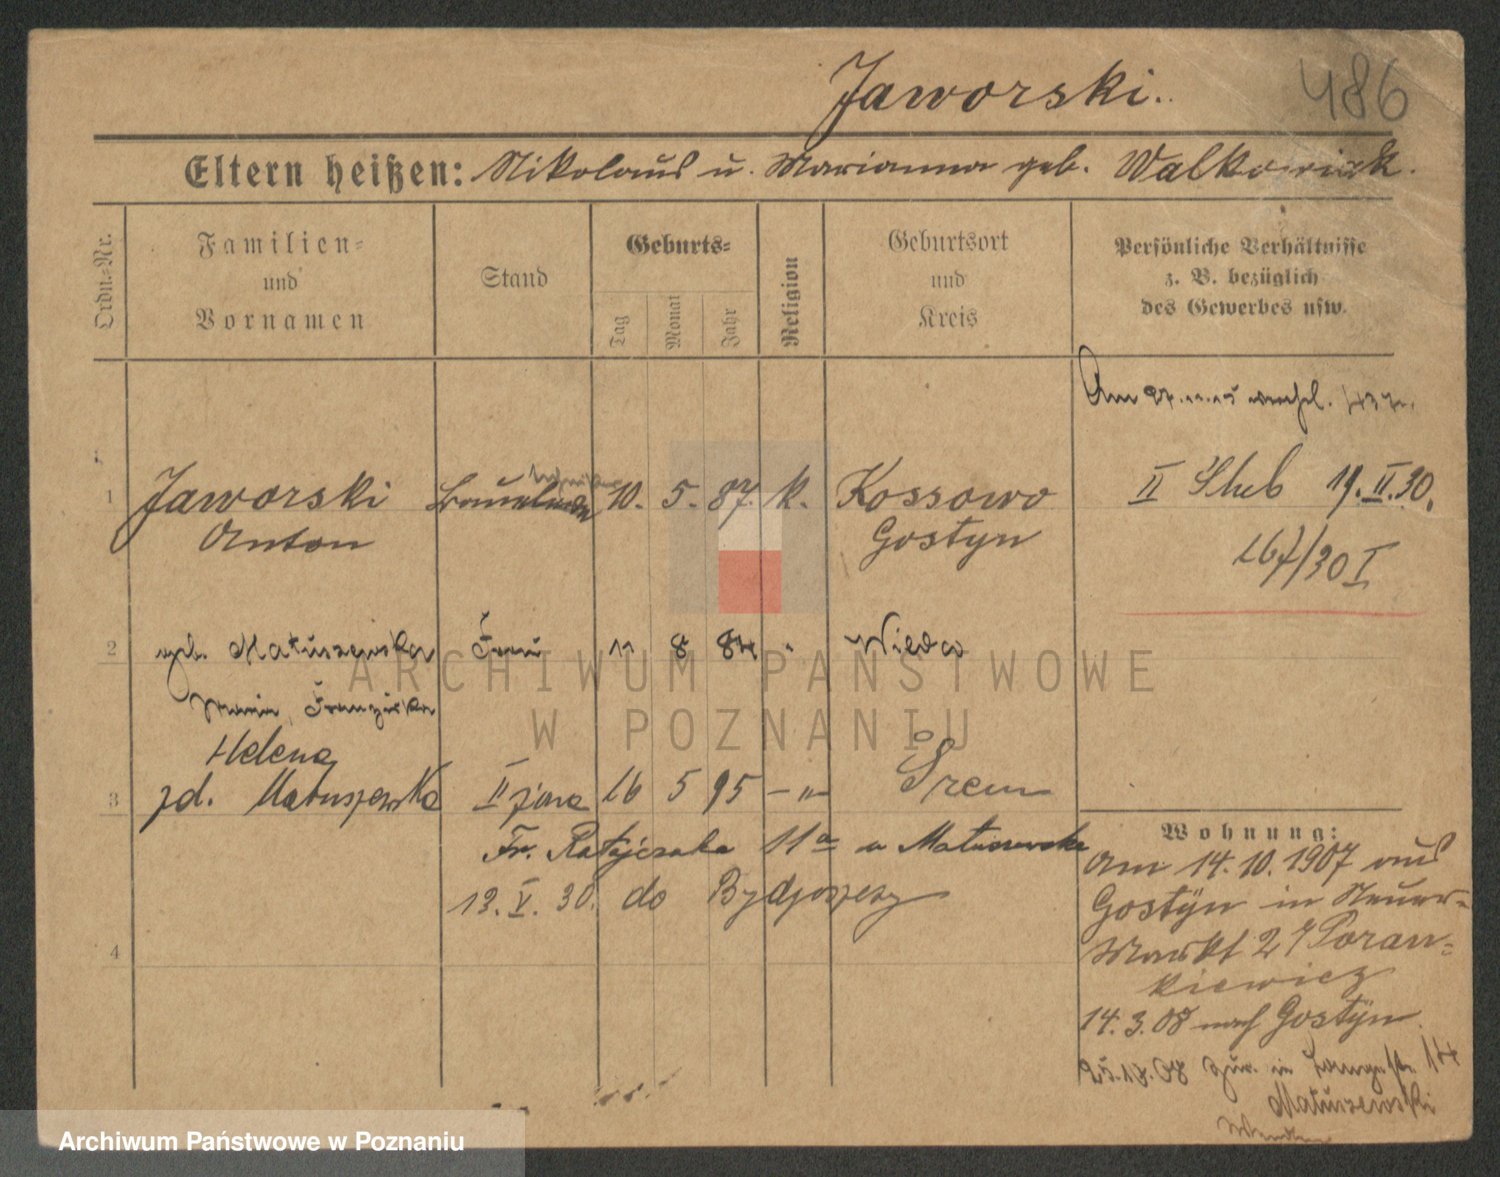 Jaworski.
486
Eltern heißen: Nikolaus u. Marianna geb. Walkowiak.
Ordn.-Nr.
Familien-
und
Vornamen
Stand
Geburts-
Tag
Monat
Jahr
Religion
Geburtsort
und
Kreis
Persönliche Verhältnisse
z. B. bezüglich
des Gewerbes usw.
Am 27.11.15
1 Jaworski 10. 5. 87. k. Kossowo II 19.II.30.
Anton Gostyn 167/30 I
2 geb. Matuszewska Frau 11 8 84 " Wieda
Maria, Franziska
Helena
3 zd. Matuszewska II żona 16 5 95 -"- Śrem
Fr. Ratajczaka 11a u Matuszewska
13. V. 30. do Bydgoszczy
4
Wohnung:
Am 14.10.1907 aus
Gostÿn in Neuer-
Markt 2 / Poran-
kiewicz
14.3.08 nach Gostÿn.
25.12.08 zur. in Langestr. 14
Matuszewski
ARCHIWUM PAŃSTWOWE
W POZNANIU
Archiwum Państwowe w Poznaniu